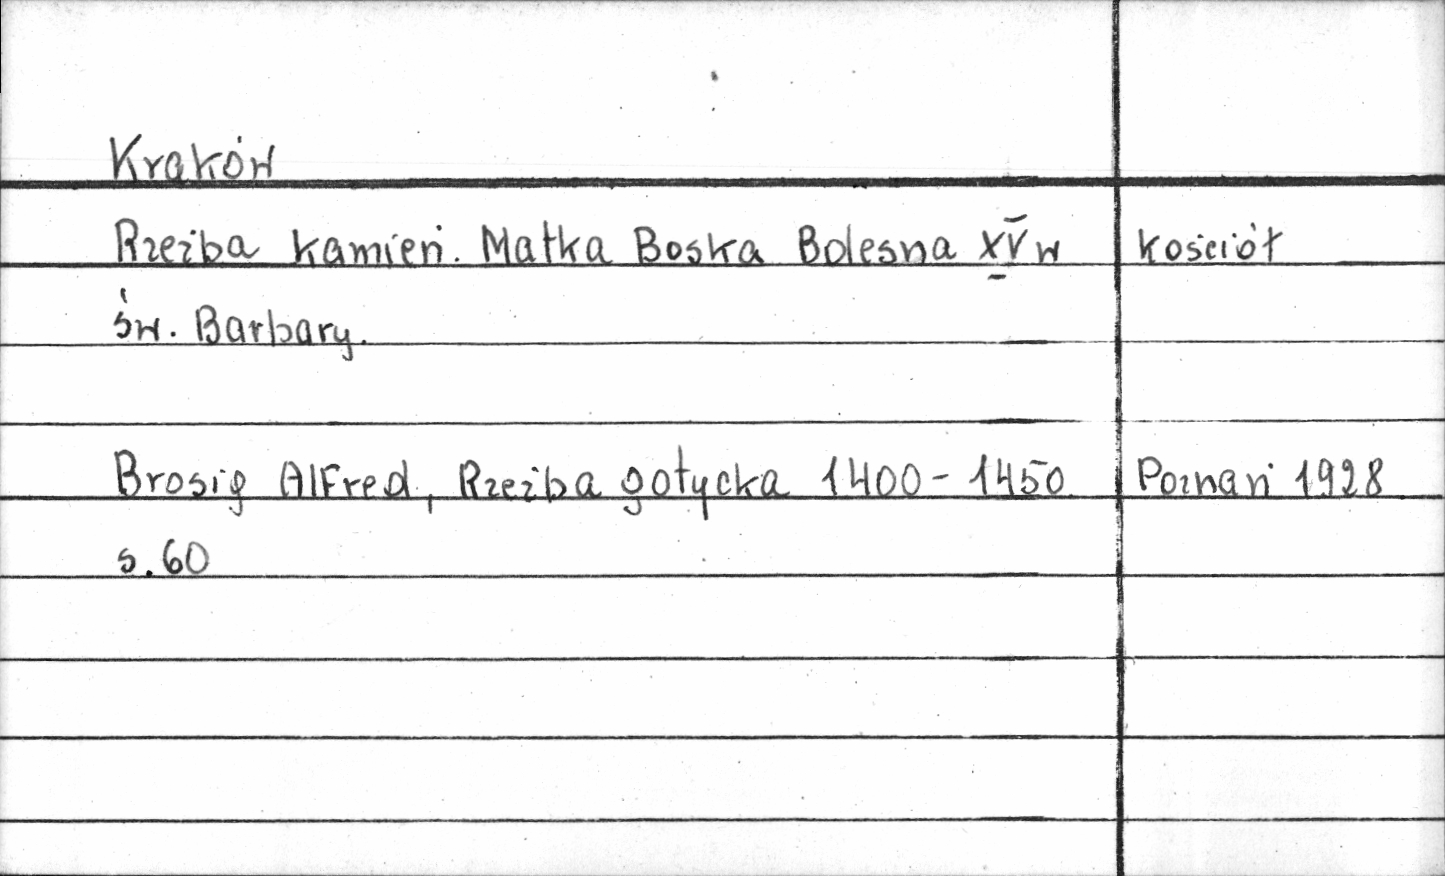 Kraków
Rzeźba kamień. Matka Boska Bolesna XV w kościół
św. Barbary.
Brosig Alfred, Rzeźba gotycka 1400-1450 Poznań 1928
s. 60